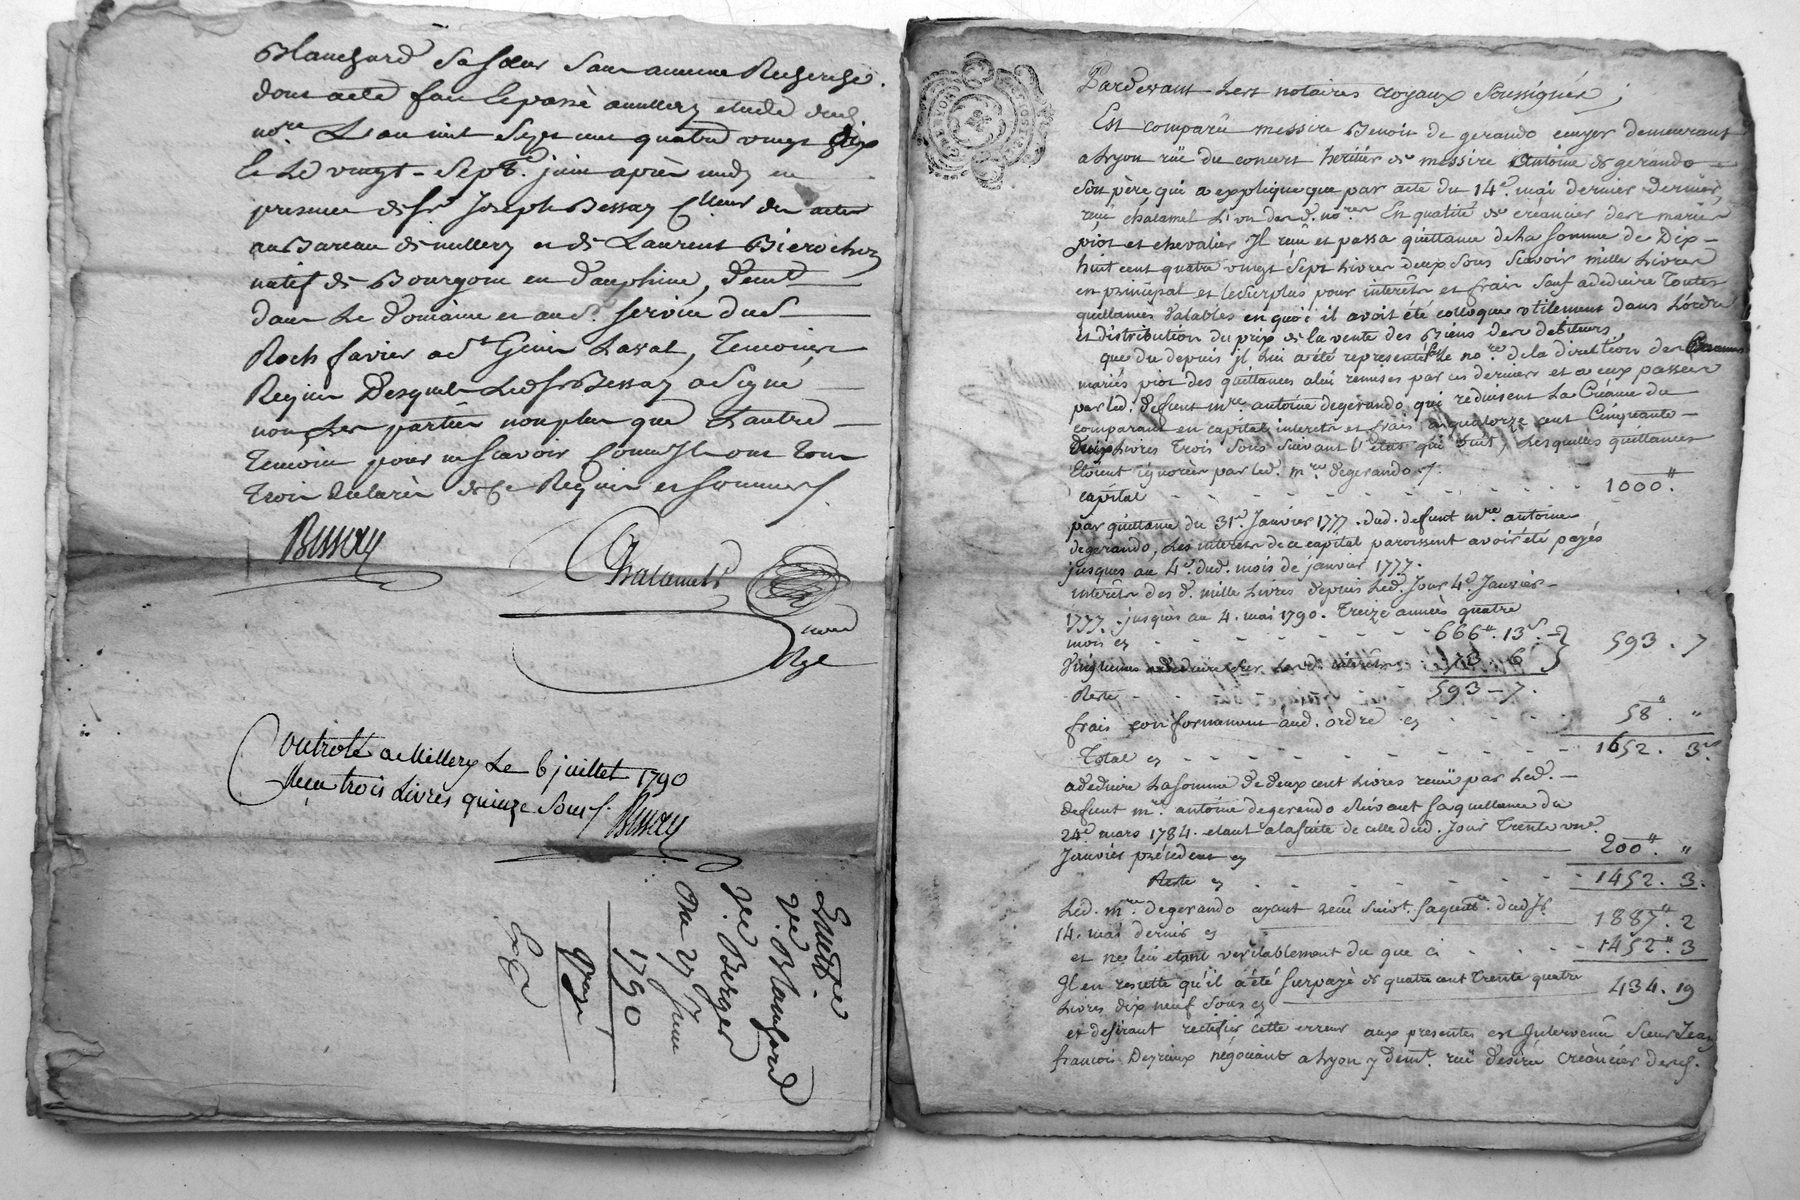 Blanchard sa sœur sans aucune Recherche.
dont acte fait et passé a millery etude dud.
nore. L'an mil sept cent quatre vingt dix
& Le vingt-sept. juin après midy en
presence de sr. Joseph Bessay des actes
au Bureau de millery et de Laurent
natif de Bourgoin en dauphiné, demt
dans Le domaine et au service dud
Roch favier a st Genis Laval, Temoins
Requis desquels Led sr Bessay a signé
non Les parties non plus que L'autre
Temoin pour ne scavoir comme Ils ont Tous
Trois declaré de ce Requis et sommés
Bessay
Chalamel
nore
Ryl
Controlé a Millery Le 6 juillet 1790
Reçu trois Livres quinze sous Bessay
Quittce
ve. Blanchard
ve Berger
Du 27 Juin
1790
Exp
Pardevant Les notaires royaux soussignés,
Est comparû messire Benoit de gerando ecuyer demeurant
a Lyon ruë du concert heritier de messire Antoine de gerando
son père, qui a expliqué que par acte du 14e. mai dernier dernier,
reçu chalamel L'un desd. nores En qualité de créancier des mariés
piot et chevalier Il reçu et passa quittance de La somme de Dix-
huit cent quatre vingt sept Livres deux sous scavoir mille Livres
en principal et le surplus pour interets et frais sauf a deduire Toutes
quittances valables en quoi il avoit été colloqué utilement dans L'ordre
et distribution du prix de la vente des Biens des debiteurs,
que du depuis jl lui a été representé Le nore. de la direction des
mariés piot des quittances a lui remises par ces derniers et a eux passées
par led. defunt mre. antoine degérando qui réduisent La Créance du
comparant en capital interets et frais a quatorze cent Cinquante-
deux Livres Trois sous suivant L'état qui suit, Lesquelles quittances
étoient ignorées par led. mre degerando.
capital - - - 1000".
par quittance du 31e. Janvier 1777. dud. defunt mre. antoine
degerando, Les interets de ce capital paroissent avoir été payés
jusques au 4e. dud. mois de janvier 1777.
interets des d. mille Livres depuis Led. Jour 4e. Janvier-
1777. jusques au 4. mai 1790. Treize années quatre
mois cy - - - 666". 13s. 593. 7
Vingtiemes a deduire sur Lesd. interets 73. 6
Reste - - - 593 - 7.
frais conformement aud. ordre cy - - - 58". "
Total cy - - - 1652. 7s.
a deduire La somme de deux cent Livres reçuë par Led.
defunt mre. antoine degerando suivant sa quittance du
24e mars 1784. etant a la suite de celle dud. Jour Trente une.
Janvier précédent cy 200". "
Reste cy - - - 1452. 3.
Led. mre degerando ayant reçu suivt. sa quittce. dud Jr.
14. mai dernier cy 1887" 2
et ne lui etant veritablement du que ci - - - 1452" 3
Il en resulte qu'il a été surpayé de quatre cent Trente quatre
Livres dix neuf sous cy 434. 19
et desirant rectifier cette erreur aux presentes est Intervenû sieur Jean
francois Deyrieux négociant a Lyon y demt. ruë desirée créancier desd.